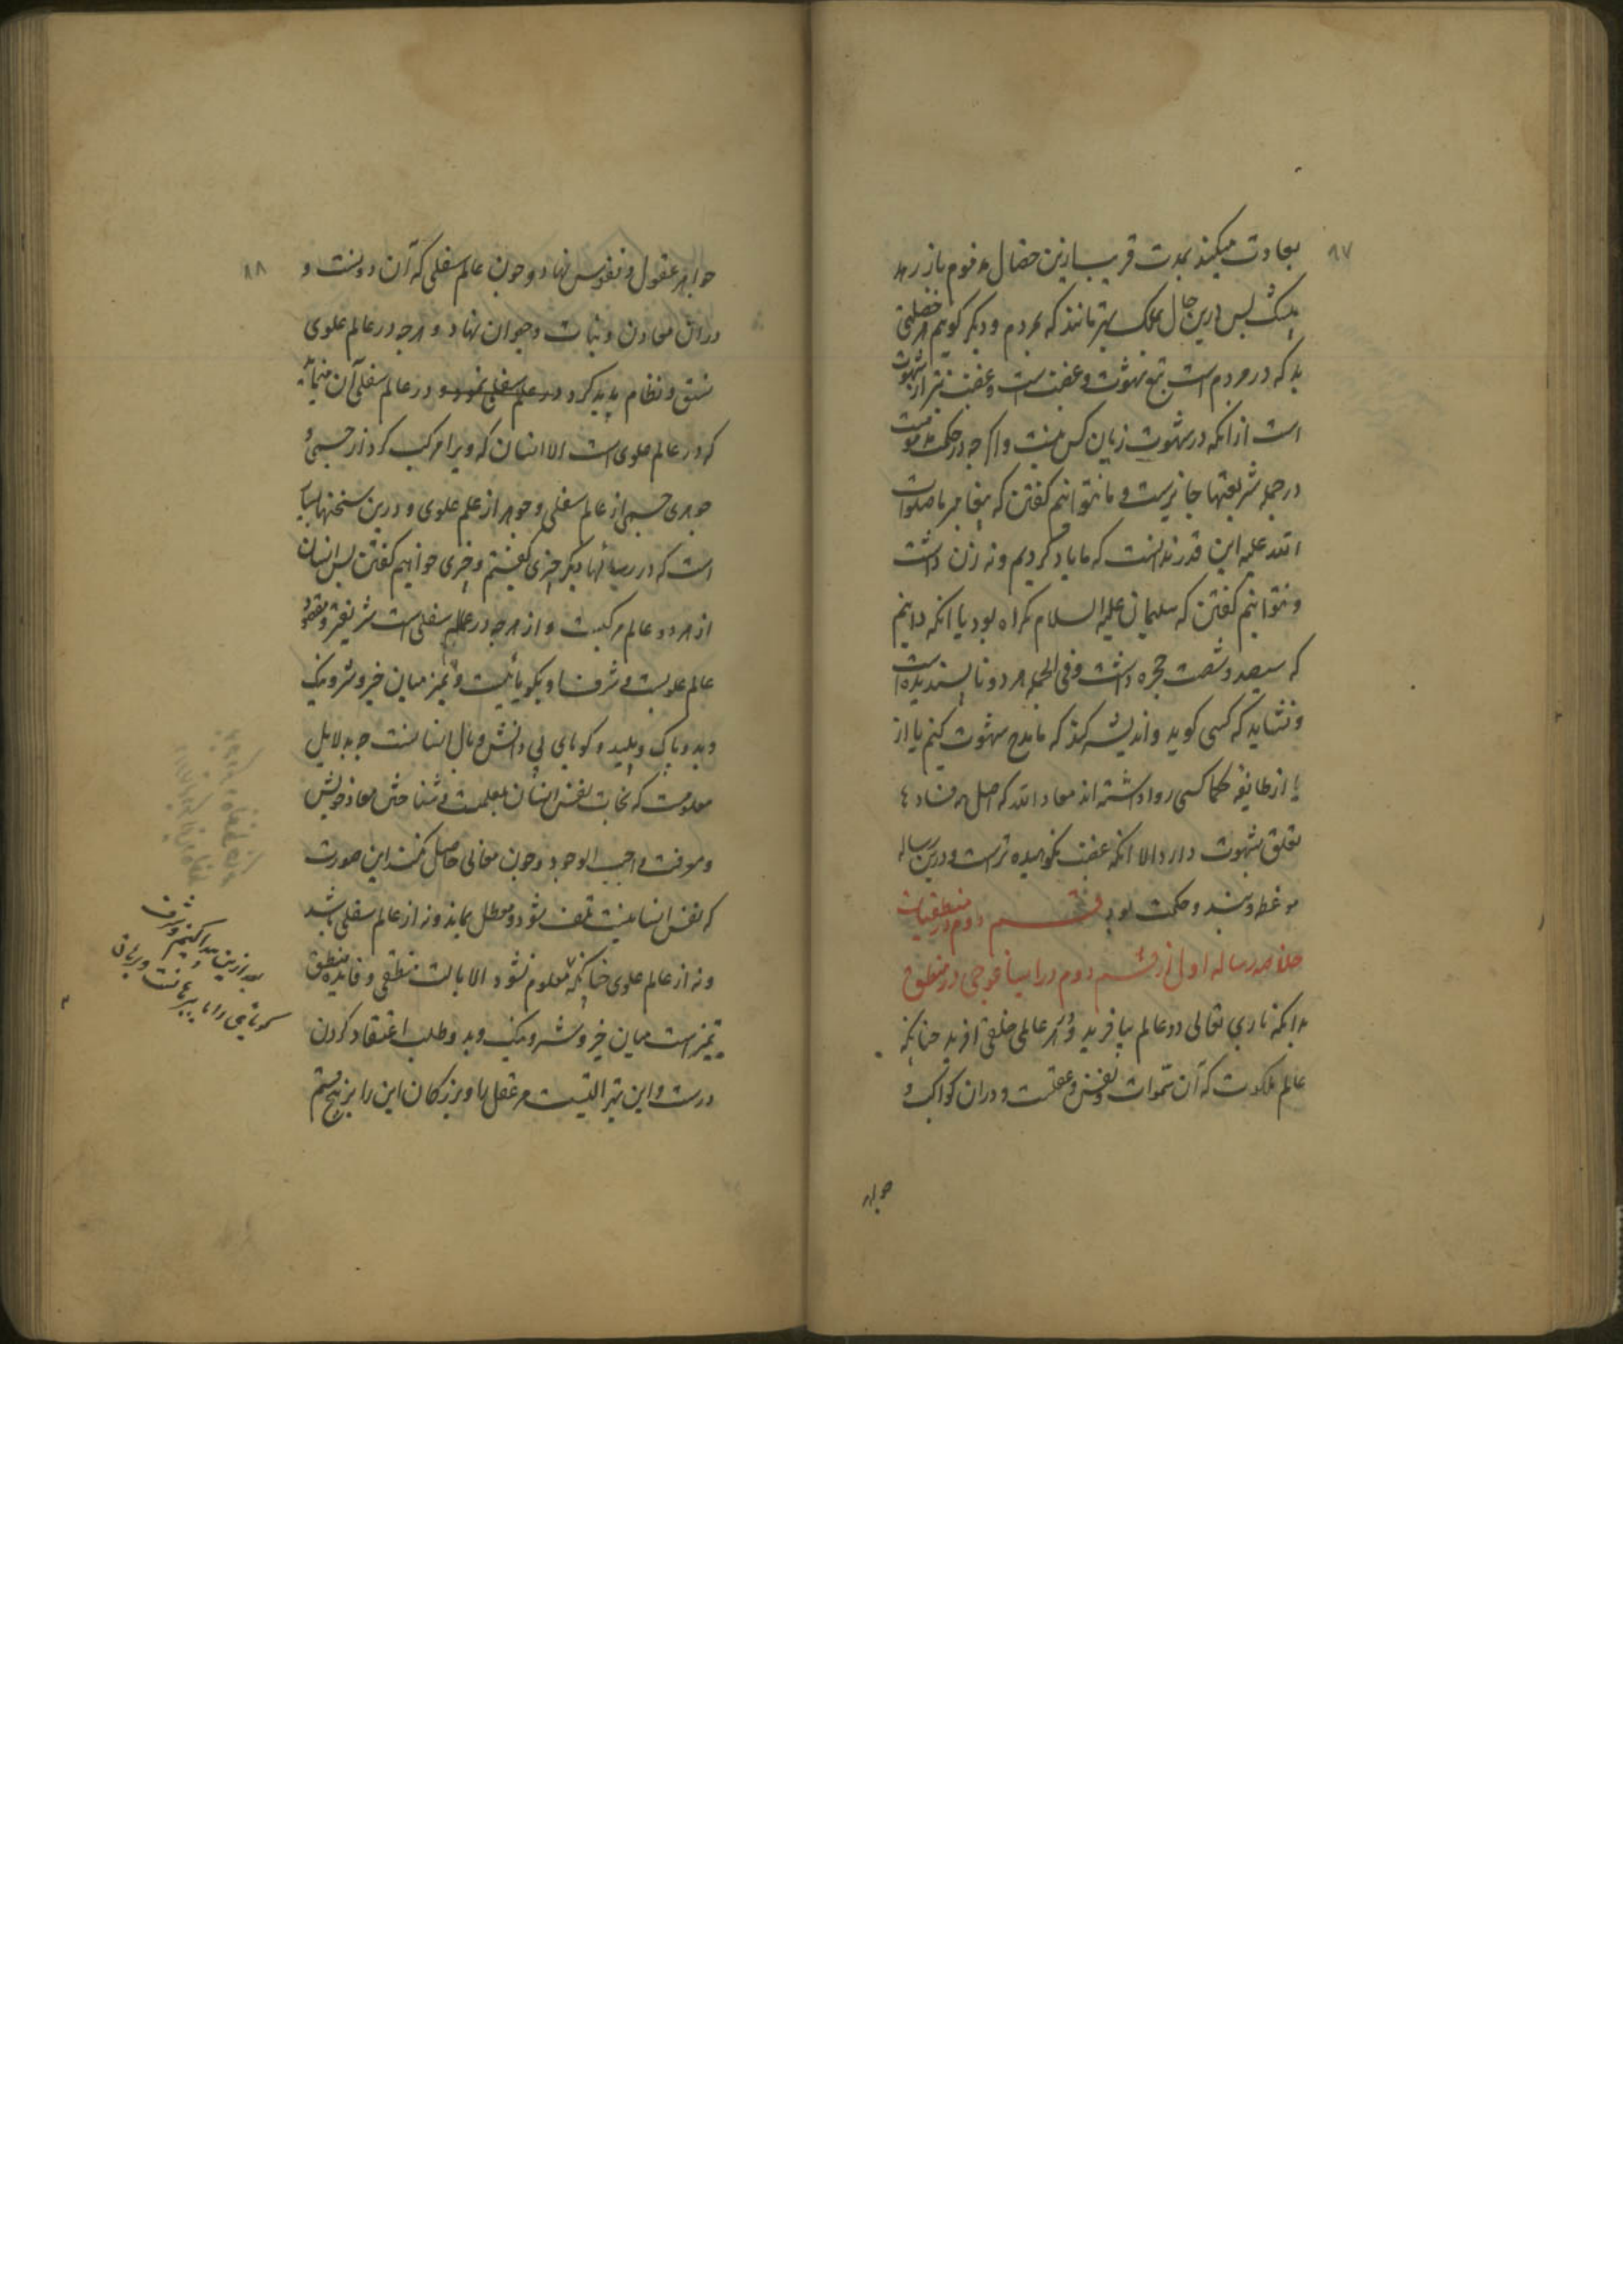 ۸۷
بعادت میکند بمدت قریب ازین خصال مذموم باز رهد
بیشک پس درین حال بملک بهتر مانند که بمردم و دیگر کوییم هر خصلتی
بد که در مردم است تبع شهوت و غضب است و غضب بتر از شهوت
است از انکه در شهوت زیان کس نیست و اکر چه در حکمت مذمومست
در جمله شریعتها جایزست و ما نتوانیم کفتن که پیغامبر ما صلوات
الله علیه این قدر ندانست که ما یاد کردیم و نه زن داشت
و نتوانیم کفتن که سلیمان علیه السلام کمراه بود با انکه دانیم
که سیصد و شصت حجره داشت و فی الجمله هر دو ناپسندیده است
و نشاید که کسی کوید و اندیشه کند که ما مدح شهوت کنیم یا از
یا از طایفه حکما کسی روا داشته اند معاد الله که اصل همه فساد
تعلق بشهوت دارد الا انکه غضب نکوهیده ترست و درین رساله
موعظه و پند و حکمت بود قسم دوم در منطقیات
خلاصه رساله اول از قسم دوم در ایساغوجی در منطق
بدانکه باری تعالی دو عالم بیافرید و در هر عالمی خلقی آفرید چنانکه
عالم ملکوت که آن سموات و نفس و عقلست و دران کواکب و
جواهر
۸۸
جواهر عقول و نفوس نهاد و چون عالم سفلی که آن دونست و
دران معادن و نبات و حیوان نهاد و هرچه در عالم علوی
نسق و نظام پدید کرد در علم سفلی نمود و در عالم سفلی آن
که در عالم علوی است الا انسان که ویرا مرکب کرد از جسمی و
جوهری جسم از عالم سفلی و جوهر از علم علوی و درین سخنها بسیار
است که در رسالهاء دیکر چیزی کفتیم و چیزی خواهیم کفتن پس انسان
از هر دو عالم مرکبست و از هرچه در عالم سفلی است شریفتر و مقصود
عالم علویست و شرف او بکویائیست و تمیز میان خیر و شر و نیک
و بد و پاک و پلید و کویای بی دانش وبال انسانست چه بدلایل
معلومست که نجات نفس انسان بعلمست و شناختن معاد خویش
و معرفت واجب الوجود و چون معانی حاصل نکند این صورت
که نفس انسانیست تلف شود و معطل بماند و نه از عالم سفلی باشد
و نه از عالم علوی چنانکه معلوم نشود الا بالت منطقی و فایده منطق
تمیز است میان خیر و شر و نیک و بد و طلب اعتقاد کردن
درست و این تیز التیست مر عقل را و بزرکان این را بر پنج قسم
بعد ازین پیدا کنیم و شرف